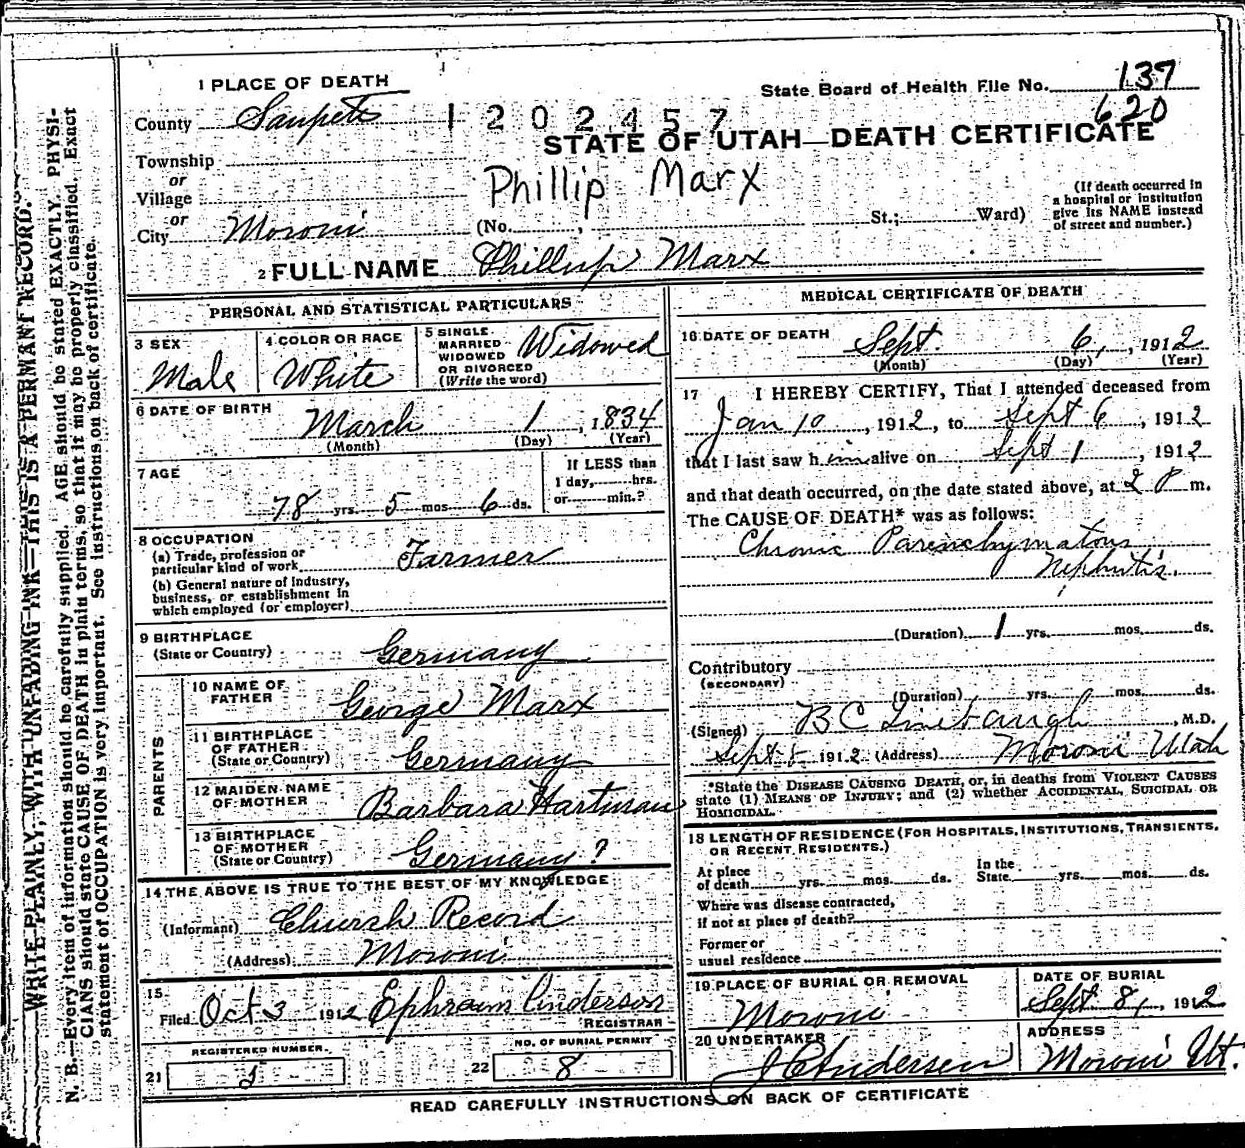 1 PLACE OF DEATH
State Board of Health File No. 137
County Sanpete 1202457 620
STATE OF UTAH—DEATH CERTIFICATE
Township
or
Village
or
City Moroni
Phillip Marx
(No. , St.; Ward)
(If death occurred in
a hospital or institution
give its NAME instead
of street and number.)
2 FULL NAME Phillip Marx
PERSONAL AND STATISTICAL PARTICULARS
3 SEX
Male
4 COLOR OR RACE
White
5 SINGLE
MARRIED
WIDOWED
OR DIVORCED
(Write the word)
Widowed
6 DATE OF BIRTH
March 1, 1834
(Month) (Day) (Year)
7 AGE
78 yrs. 5 mos. 6 ds.
If LESS than
1 day, hrs.
or min.?
8 OCCUPATION
(a) Trade, profession or
particular kind of work Farmer
(b) General nature of industry,
business, or establishment in
which employed (or employer)
9 BIRTHPLACE
(State or Country) Germany
PARENTS
10 NAME OF
FATHER George Marx
11 BIRTHPLACE
OF FATHER
(State or Country) Germany
12 MAIDEN NAME
OF MOTHER Barbara Hartman
13 BIRTHPLACE
OF MOTHER
(State or Country) Germany?
14 THE ABOVE IS TRUE TO THE BEST OF MY KNOWLEDGE
(Informant) Church Record
(Address) Moroni
15
Filed Oct 3 1912 Ephraim Anderson
REGISTRAR
REGISTERED NUMBER.
21
NO. OF BURIAL PERMIT
22 8
MEDICAL CERTIFICATE OF DEATH
16 DATE OF DEATH Sept. 6, 1912
(Month) (Day) (Year)
17 I HEREBY CERTIFY, That I attended deceased from
Jan 10, 1912, to Sept 6, 1912
that I last saw him alive on Sept 1, 1912
and that death occurred, on the date stated above, at 2 P m.
The CAUSE OF DEATH* was as follows:
Chronic Parenchymatous
Nephritis.
(Duration) 1 yrs. mos. ds.
Contributory
(SECONDARY)
(Duration) yrs. mos. ds.
(Signed) B C Linebaugh, M.D.
Sept 1912 (Address) Moroni Utah
*State the DISEASE CAUSING DEATH, or, in deaths from VIOLENT CAUSES
state (1) MEANS OF INJURY; and (2) whether ACCIDENTAL, SUICIDAL OR
HOMICIDAL.
18 LENGTH OF RESIDENCE (FOR HOSPITALS, INSTITUTIONS, TRANSIENTS,
OR RECENT RESIDENTS.)
At place
of death yrs. mos. ds.
In the
State yrs. mos. ds.
Where was disease contracted,
if not at place of death?
Former or
usual residence
19 PLACE OF BURIAL OR REMOVAL
Moroni
DATE OF BURIAL
Sept 8, 1912
20 UNDERTAKER
J C Andersen
ADDRESS
Moroni Ut.
READ CAREFULLY INSTRUCTIONS ON BACK OF CERTIFICATE
WRITE PLAINLY, WITH UNFADING INK—THIS IS A PERMANT RECORD.
N. B.—Every item of information should be carefully supplied. AGE should be stated EXACTLY. PHYSI-
CIANS should state CAUSE OF DEATH in plain terms, so that it may be properly classified. Exact
statement of OCCUPATION is very important. See instructions on back of certificate.